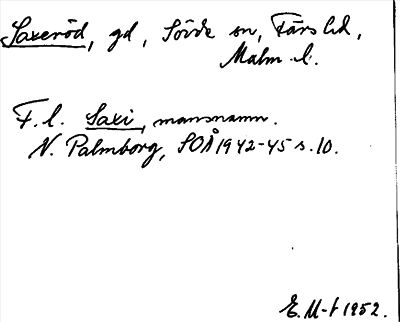 Saxeröd, gd, Sövde sn, Färs hd,
Malm. l.
F. l. Saxi, mansnamn.
N. Palmborg, SOÅ 1942-45 s. 10.
E. M-t 1952.